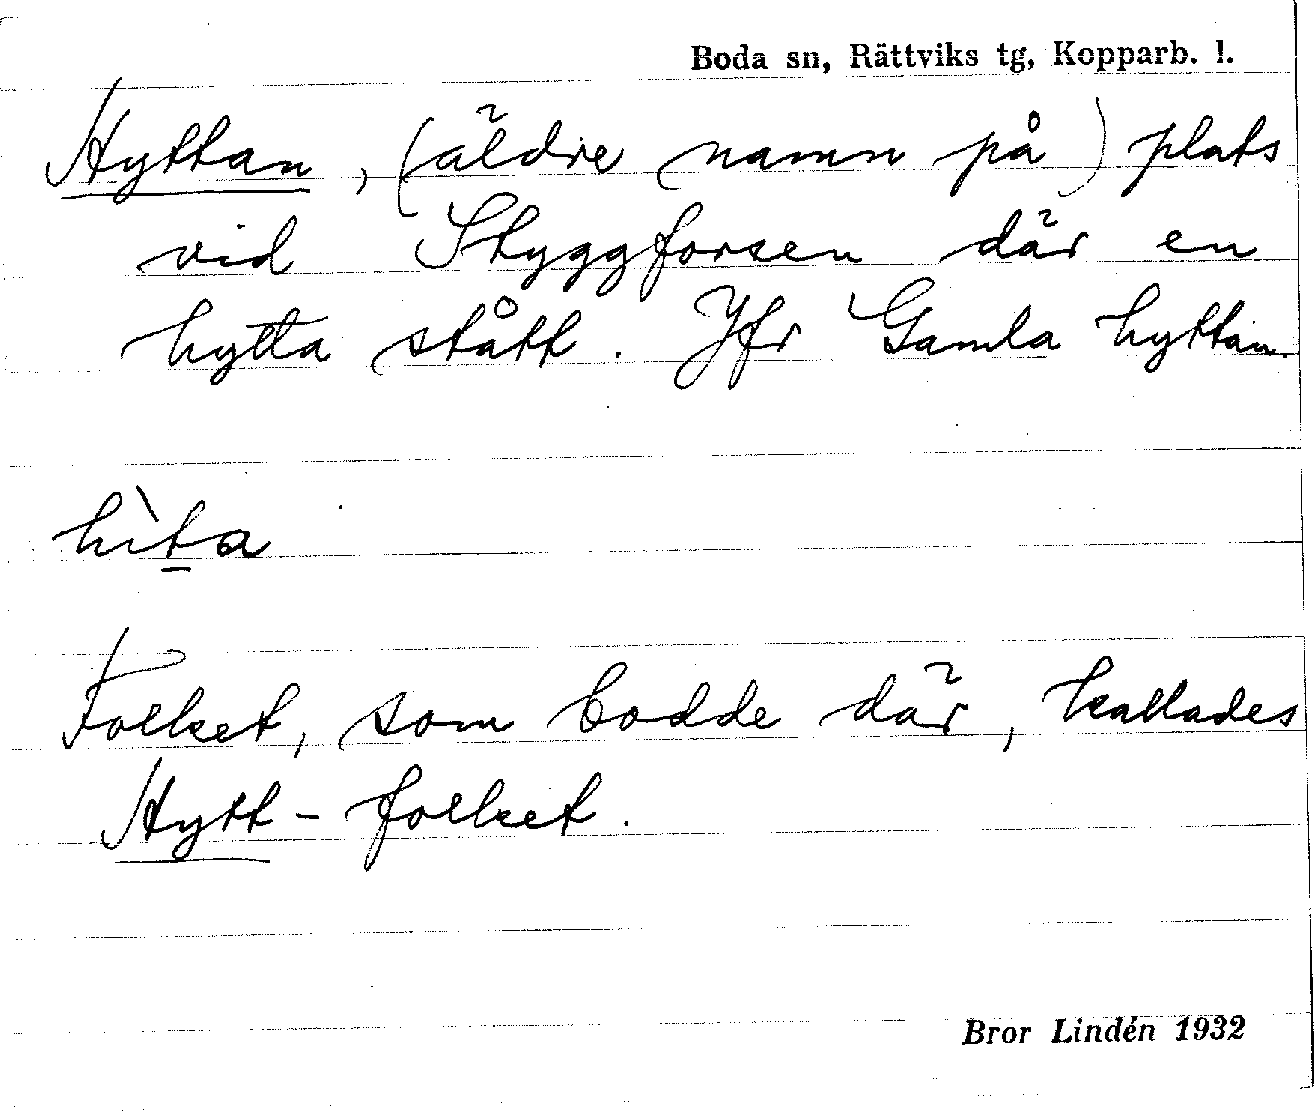 Boda sn, Rättviks tg, Kopparb. l.
Hyttan, (äldre namn på) plats
vid Styggforsen där en
hytta stått. Jfr Gamla hyttan.
hìt̲a
Folket, som bodde där, kallades
Hytt-folket.
Bror Lindén 1932